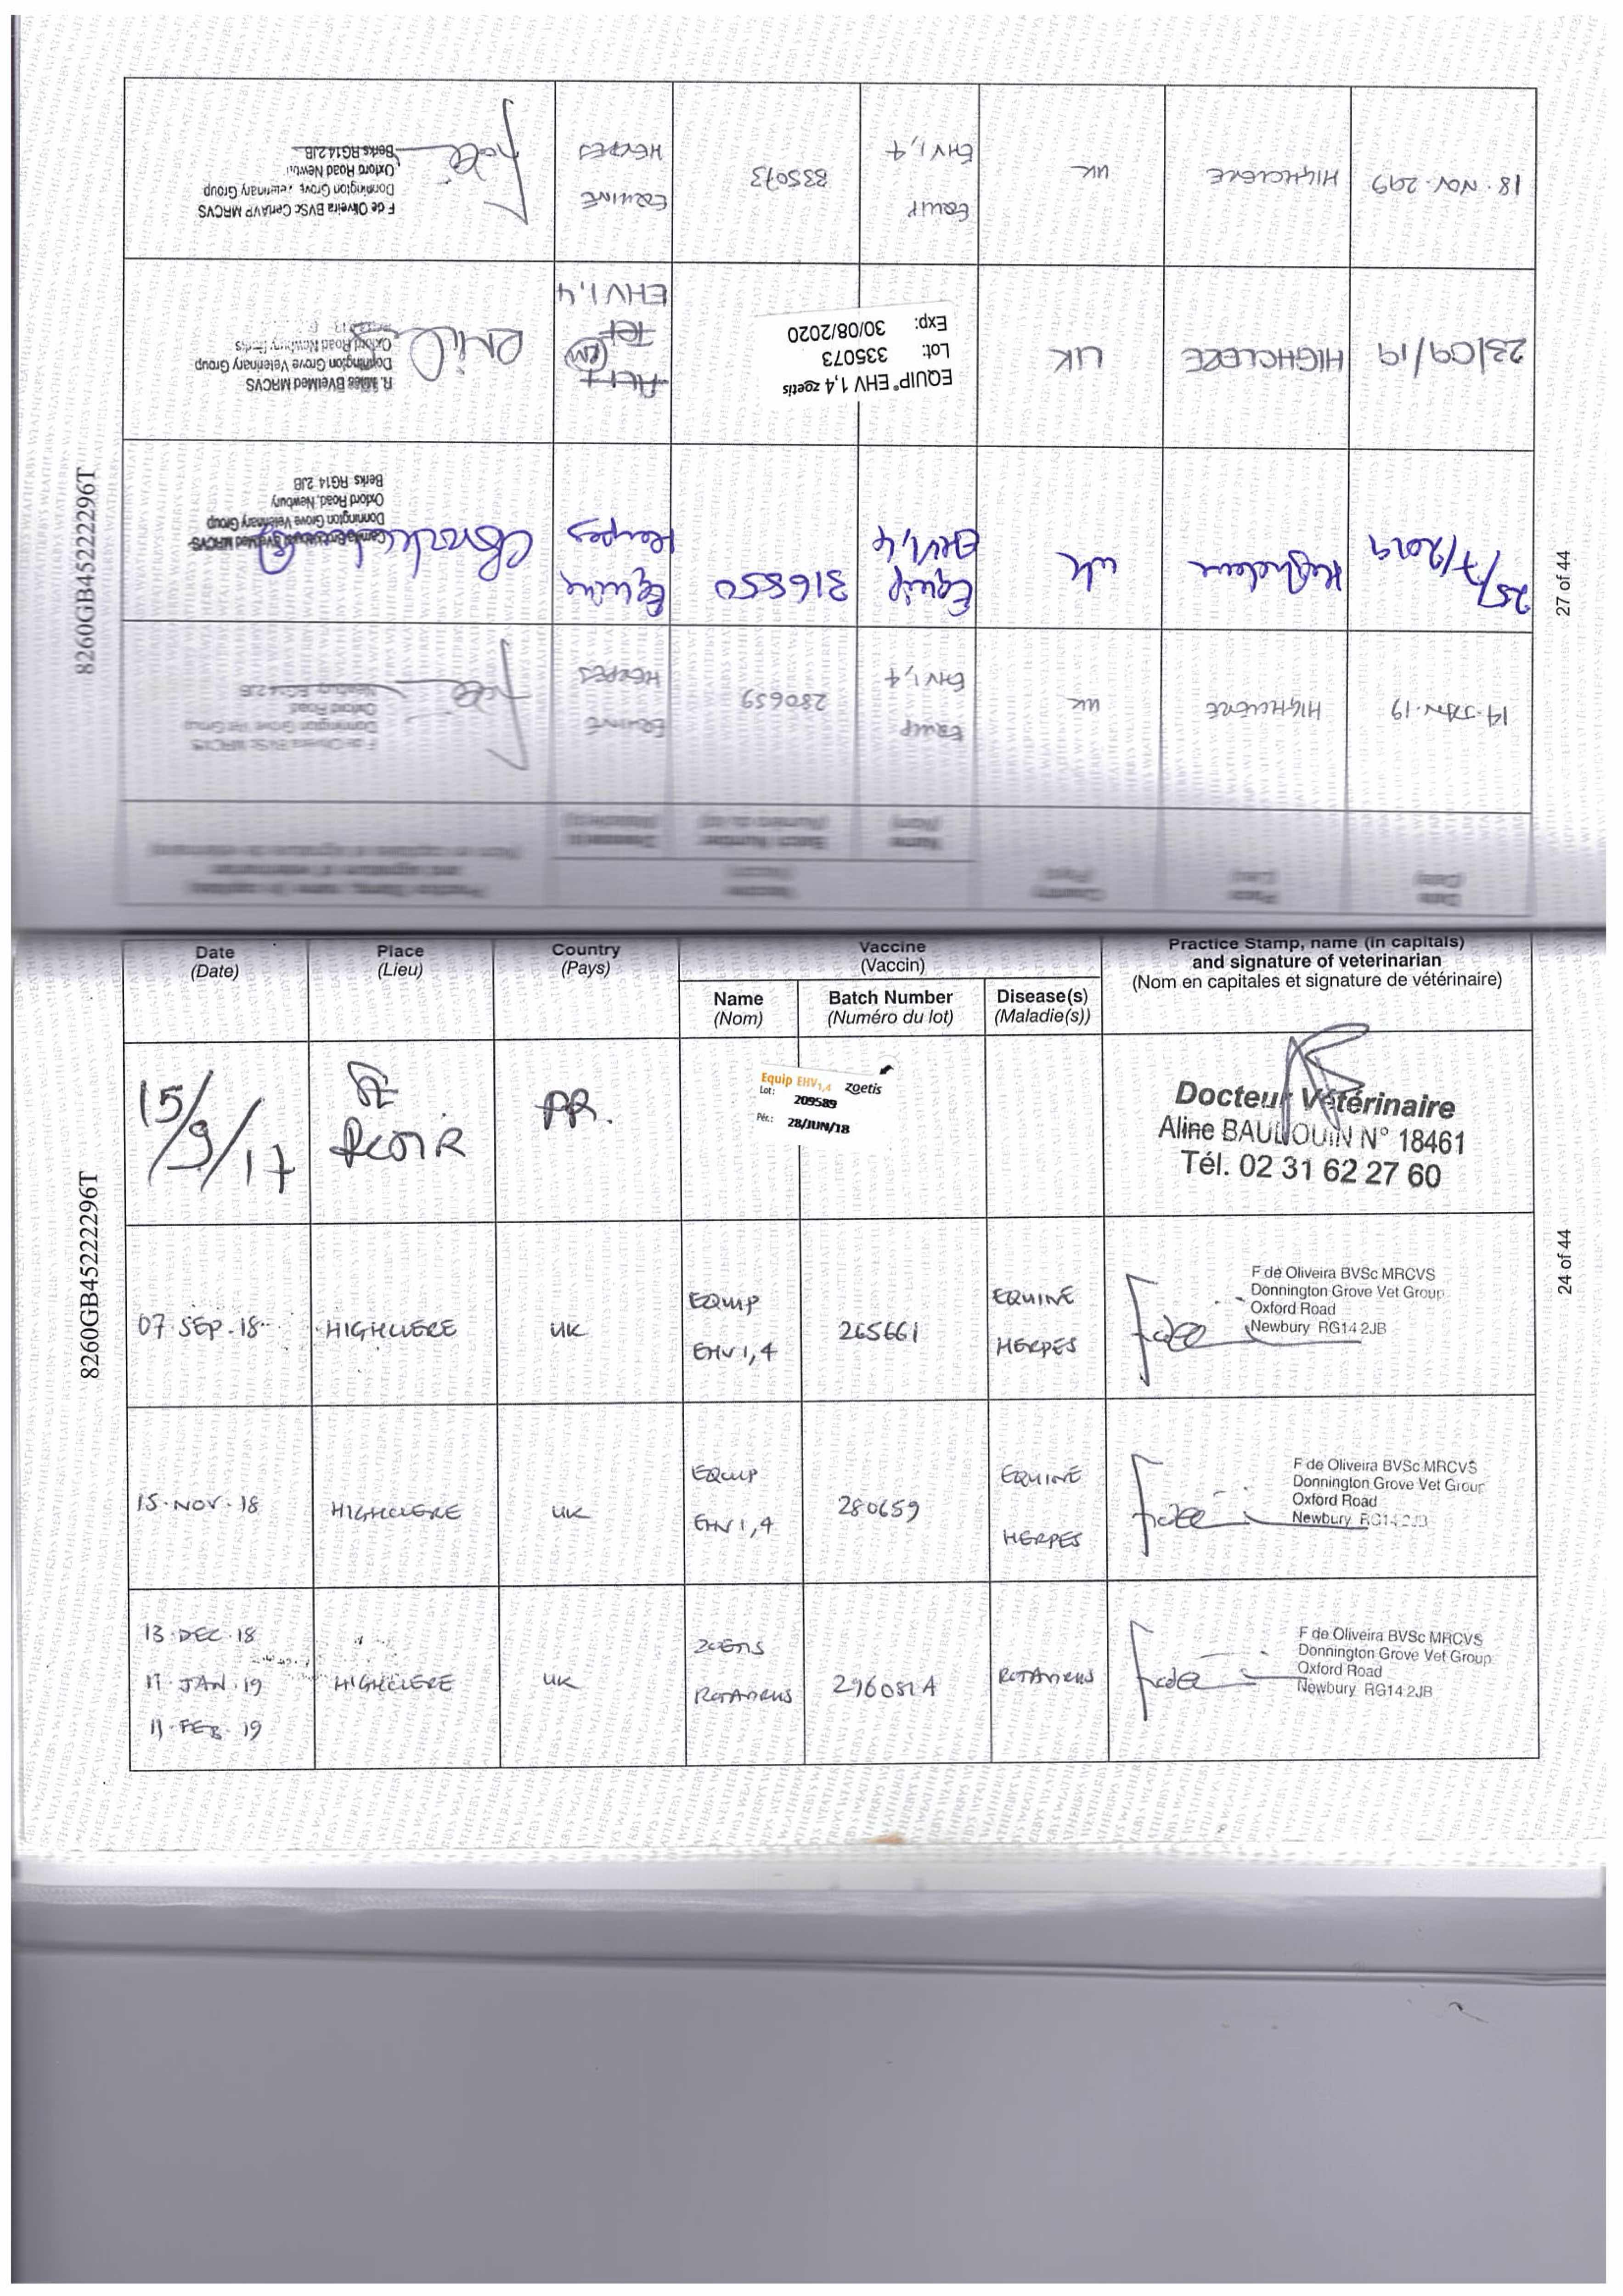 8260GB45222296T
27 of 44
14.JAN.19
HIGHCLERE
UK
EQUIP
EHV 1,4
280659
EQUINE
HERPES
F de Oliveira BVSc MRCVS
Donnington Grove Vet Group
Oxford Road
Newbury RG14 2JB
25/7/2019
Highclere
UK
Equip
EHV1,4
316850
Equine
Herpes
Donnington Grove Veterinary Group
Oxford Road, Newbury
Berks RG14 2JB
23/09/19
HIGHCLERE
UK
EQUIP® EHV 1,4 zoetis
Lot: 335073
Exp: 30/08/2020
EHV1,4
R. Miles BVetMed MRCVS
Donnington Grove Veterinary Group
Oxford Road Newbury Berks
18.NOV.2019
HIGHCLERE
UK
EQUIP
EHV 1,4
335073
EQUINE
HERPES
F de Oliveira BVSc CertAVP MRCVS
Donnington Grove Veterinary Group
Oxford Road Newbury
Berks RG14 2JB
8260GB45222296T
24 of 44
Date
(Date)
Place
(Lieu)
Country
(Pays)
Vaccine
(Vaccin)
Name
(Nom)
Batch Number
(Numéro du lot)
Disease(s)
(Maladie(s))
Practice Stamp, name (in capitals)
and signature of veterinarian
(Nom en capitales et signature de vétérinaire)
15/9/17
Equip EHV1,4 zoetis
Lot: 209589
Pér.: 28/JUN/18
Docteur Vétérinaire
Aline BAUDOUIN N° 18461
Tél. 02 31 62 27 60
07.SEP.18
HIGHCLERE
UK
EQUIP
EHV 1,4
265661
EQUINE
HERPES
F de Oliveira BVSc MRCVS
Donnington Grove Vet Group
Oxford Road
Newbury RG14 2JB
15.NOV.18
HIGHCLERE
UK
EQUIP
EHV 1,4
280659
EQUINE
HERPES
F de Oliveira BVSc MRCVS
Donnington Grove Vet Group
Oxford Road
Newbury RG14 2JB
13.DEC.18
11.JAN.19
11.FEB.19
HIGHCLERE
UK
ZOETIS
ROTAVIRUS
296081A
ROTAVIRUS
F de Oliveira BVSc MRCVS
Donnington Grove Vet Group
Oxford Road
Newbury RG14 2JB